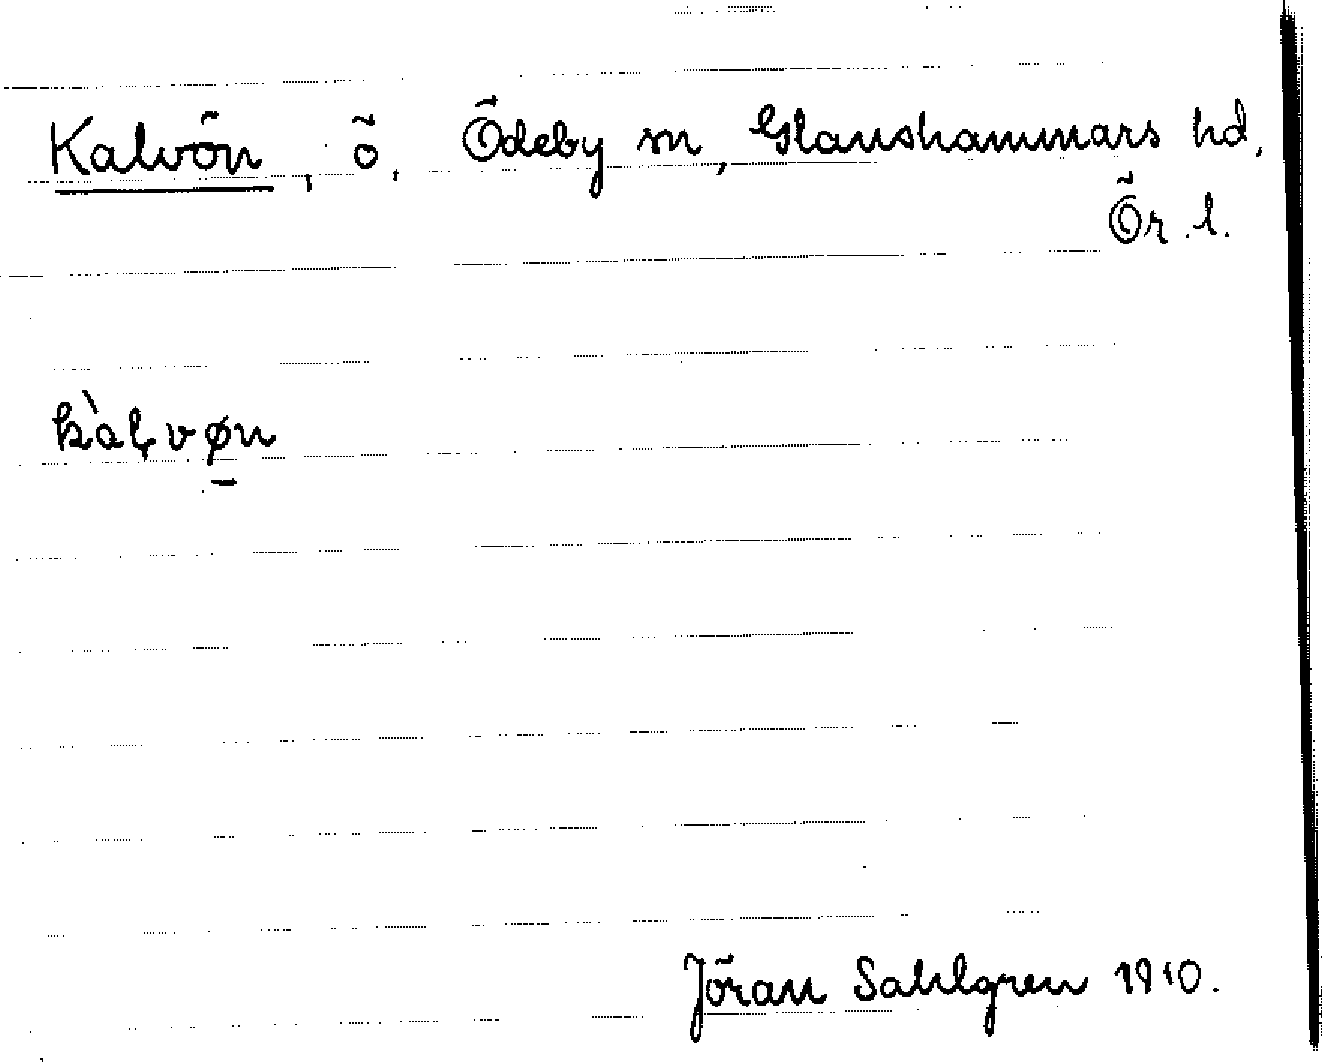 Kalvön, ö, Ödeby sn, Glanshammars hd,
Ör. l.
kàḷvø̱n
Jöran Sahlgren 1910.